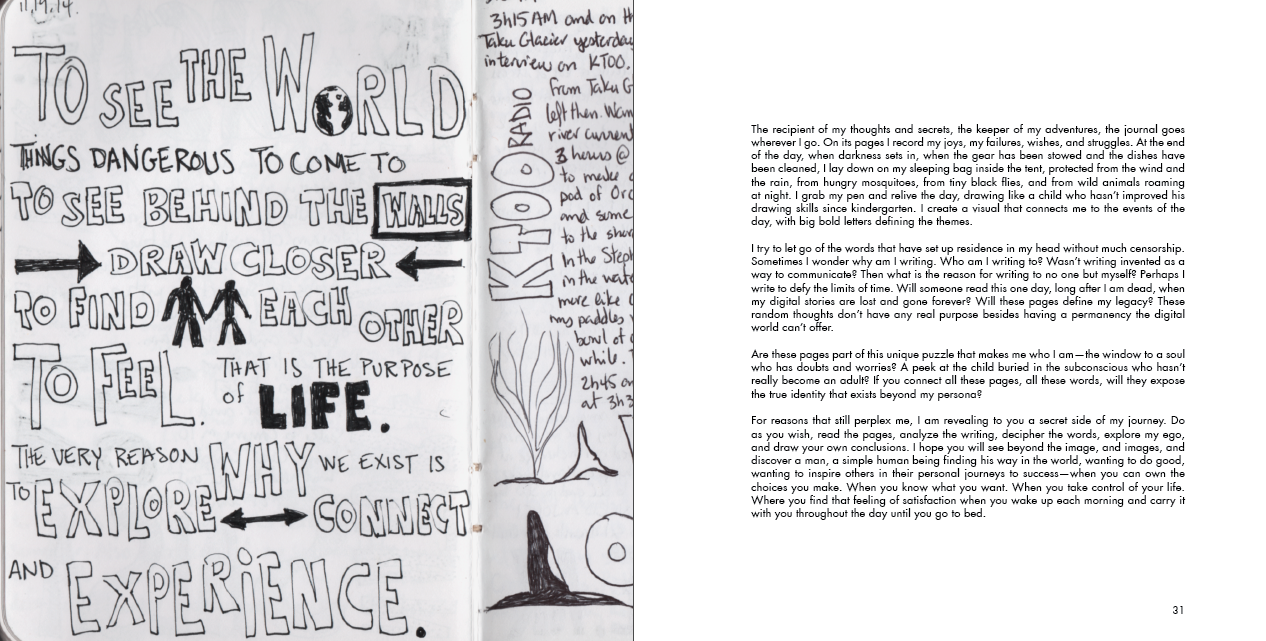 11.19.14.
TO SEE THE WORLD
THINGS DANGEROUS TO COME TO
TO SEE BEHIND THE WALLS
DRAW CLOSER
TO FIND EACH OTHER
TO FEEL. THAT IS THE PURPOSE
of LIFE.
THE VERY REASON WHY WE EXIST IS
TO EXPLORE CONNECT
AND EXPERIENCE.
3h15 AM and on
Taku Glacier yesterday
interview on KTOO.
KTOO RADIO
from Taku
left then.
river current
3 hours @
to make
pod of
and some
to the
In the
in the
more like
my paddles
bowl of
while.
2h45
at 3h3
The recipient of my thoughts and secrets, the keeper of my adventures, the journal goes
wherever I go. On its pages I record my joys, my failures, wishes, and struggles. At the end
of the day, when darkness sets in, when the gear has been stowed and the dishes have
been cleaned, I lay down on my sleeping bag inside the tent, protected from the wind and
the rain, from hungry mosquitoes, from tiny black flies, and from wild animals roaming
at night. I grab my pen and relive the day, drawing like a child who hasn't improved his
drawing skills since kindergarten. I create a visual that connects me to the events of the
day, with big bold letters defining the themes.
I try to let go of the words that have set up residence in my head without much censorship.
Sometimes I wonder why am I writing. Who am I writing to? Wasn't writing invented as a
way to communicate? Then what is the reason for writing to no one but myself? Perhaps I
write to defy the limits of time. Will someone read this one day, long after I am dead, when
my digital stories are lost and gone forever? Will these pages define my legacy? These
random thoughts don't have any real purpose besides having a permanency the digital
world can't offer.
Are these pages part of this unique puzzle that makes me who I am—the window to a soul
who has doubts and worries? A peek at the child buried in the subconscious who hasn't
really become an adult? If you connect all these pages, all these words, will they expose
the true identity that exists beyond my persona?
For reasons that still perplex me, I am revealing to you a secret side of my journey. Do
as you wish, read the pages, analyze the writing, decipher the words, explore my ego,
and draw your own conclusions. I hope you will see beyond the image, and images, and
discover a man, a simple human being finding his way in the world, wanting to do good,
wanting to inspire others in their personal journeys to success—when you can own the
choices you make. When you know what you want. When you take control of your life.
Where you find that feeling of satisfaction when you wake up each morning and carry it
with you throughout the day until you go to bed.
31